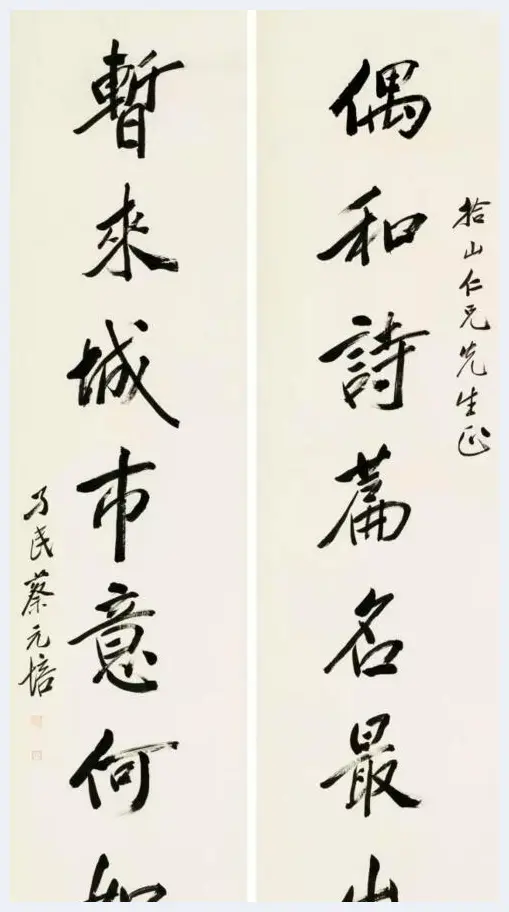 拾山仁兄先生正
偶和詩篇名最
暫來城市意何如
孑民蔡元培